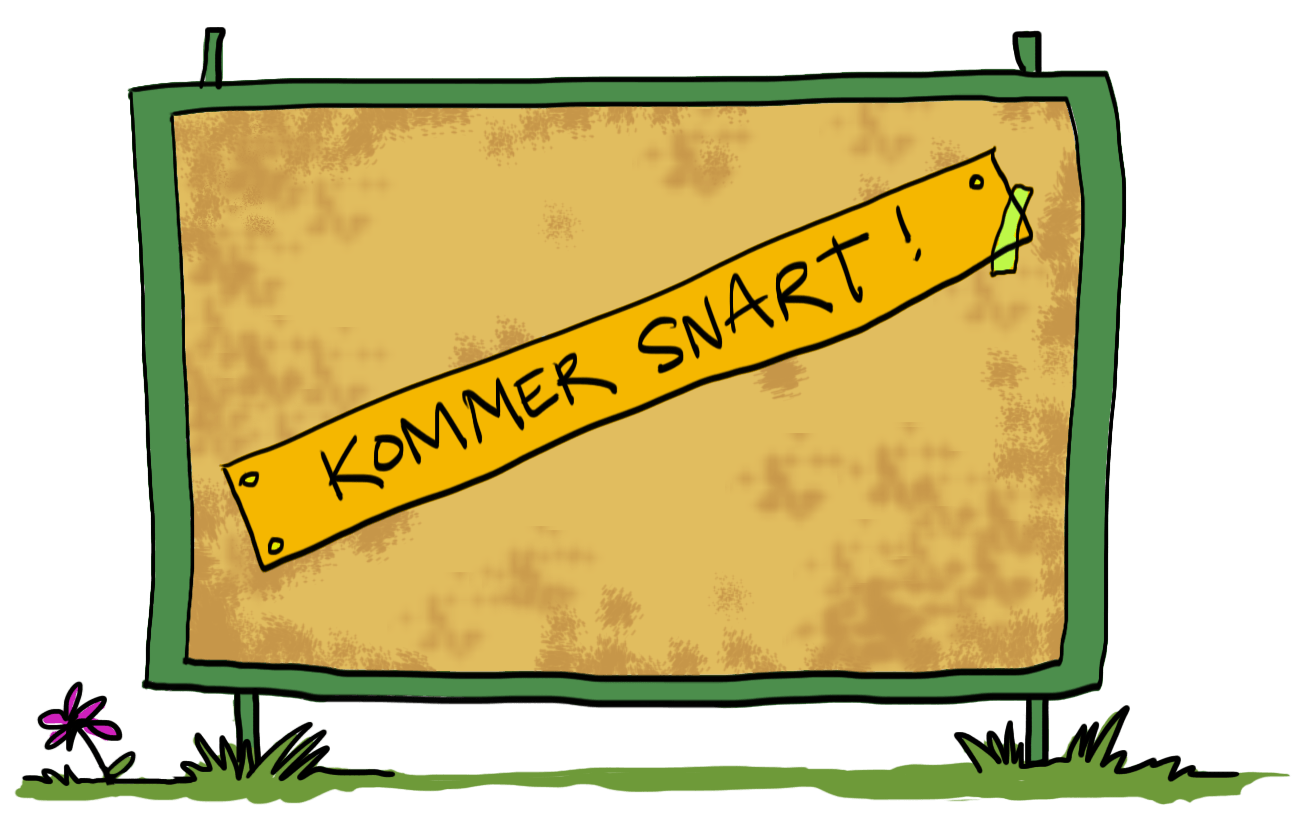 KOMMER SNART!